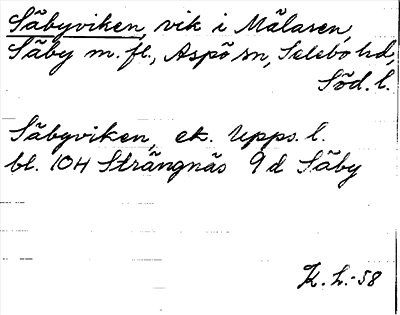 Säbyviken, vik i Mälaren,
Säby m. fl., Aspö sn, Selebo hd,
Söd. l.
Säbyviken, ek. Upps. l.
bl. 10H Strängnäs 9 d Säby
K. L.-58